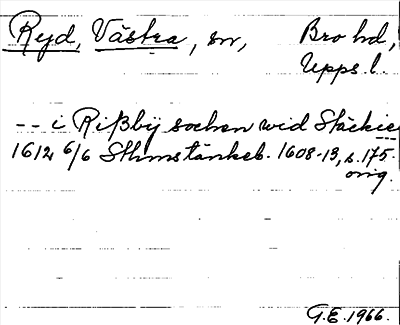 Ryd, Västra, sn, Bro hd,
Upps. l.
-- i Rißbÿ sochen wid Stäckie
1612 6/6 Sthms tänkeb. 1608-13, s. 175.
orig.
G.E. 1966.